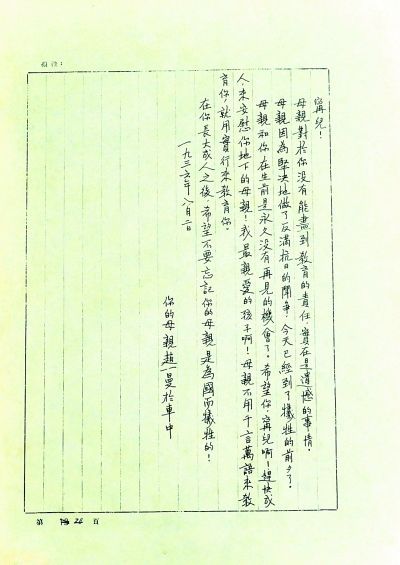 備注：
寗兒！
母親對於你没有能盡到教育的責任，實在是遺憾的事情。
母親因為堅决地做了反滿抗日的鬥争，今天已經到了犧牲的前夕了。
母親和你在生前是永久没有再見的機會了。希望你，寗兒啊！趕快成
人，來安慰你地下的母親！我最親愛的孩子啊！母親不用千言萬語來教
育你，就用實行來教育你。
在你長大成人之後，希望不要忘記你的母親是為國而犧牲的！
一九三六年八月二日
你的母親趙一曼於車中
第
月